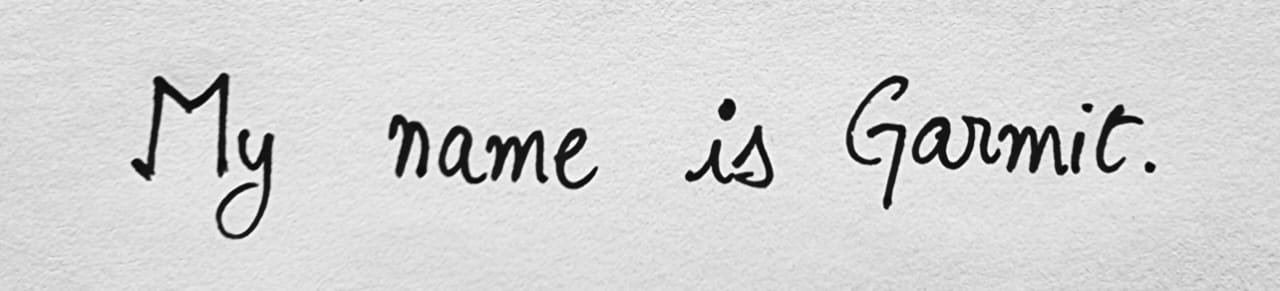 My name is Garmit.